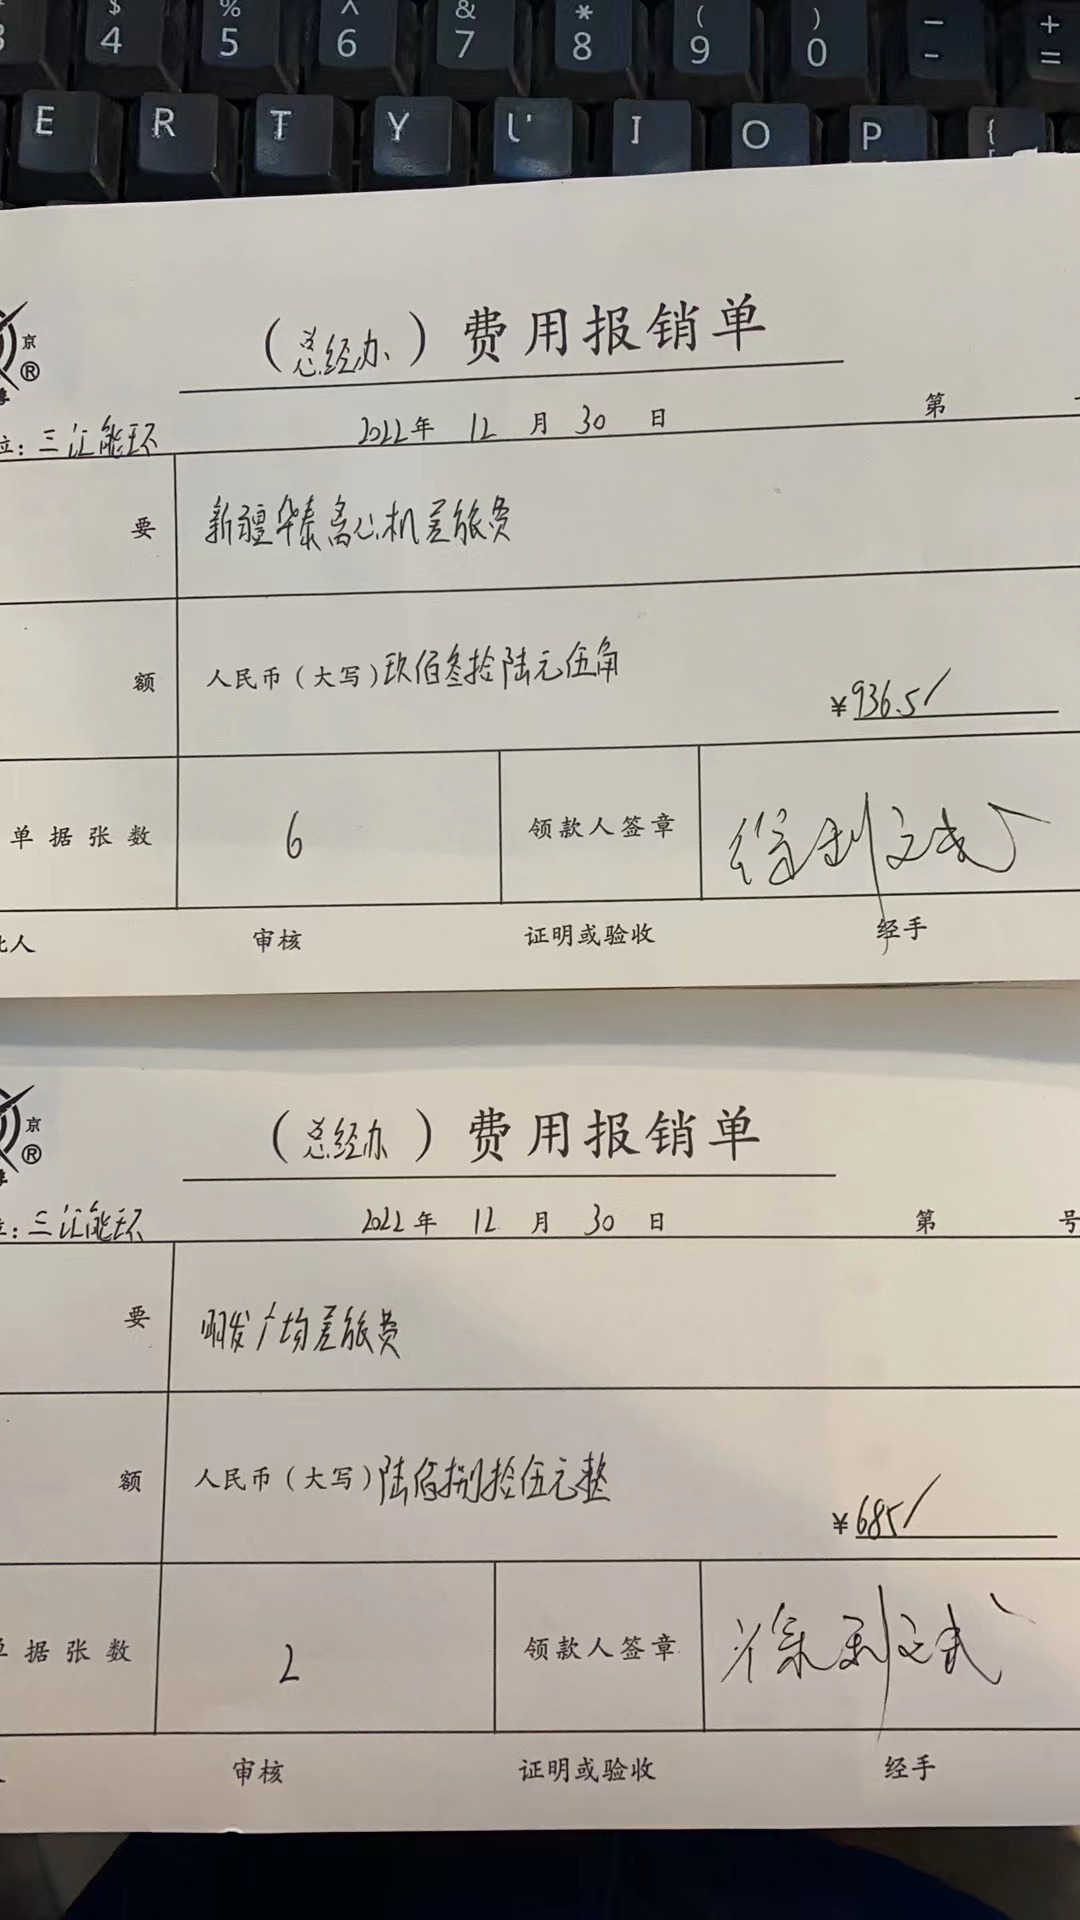 $ % ^ & * ( ) _ +
4 5 6 7 8 9 0 - =
E R T Y U I O P {
[
京
®
(总经办)费用报销单
位:三江能环 2022年 12月 30日 第
要 新疆华泰离心机差旅费
额 人民币(大写)玖佰叁拾陆元伍角 ¥936.5/
单据张数 6 领款人签章
批人 审核 证明或验收 经手
京
®
(总经办)费用报销单
位:三江能环 2022年 12月 30日 第 号
要 明发广场差旅费
额 人民币(大写)陆佰捌拾伍元整 ¥685/
单据张数 2 领款人签章
审核 证明或验收 经手